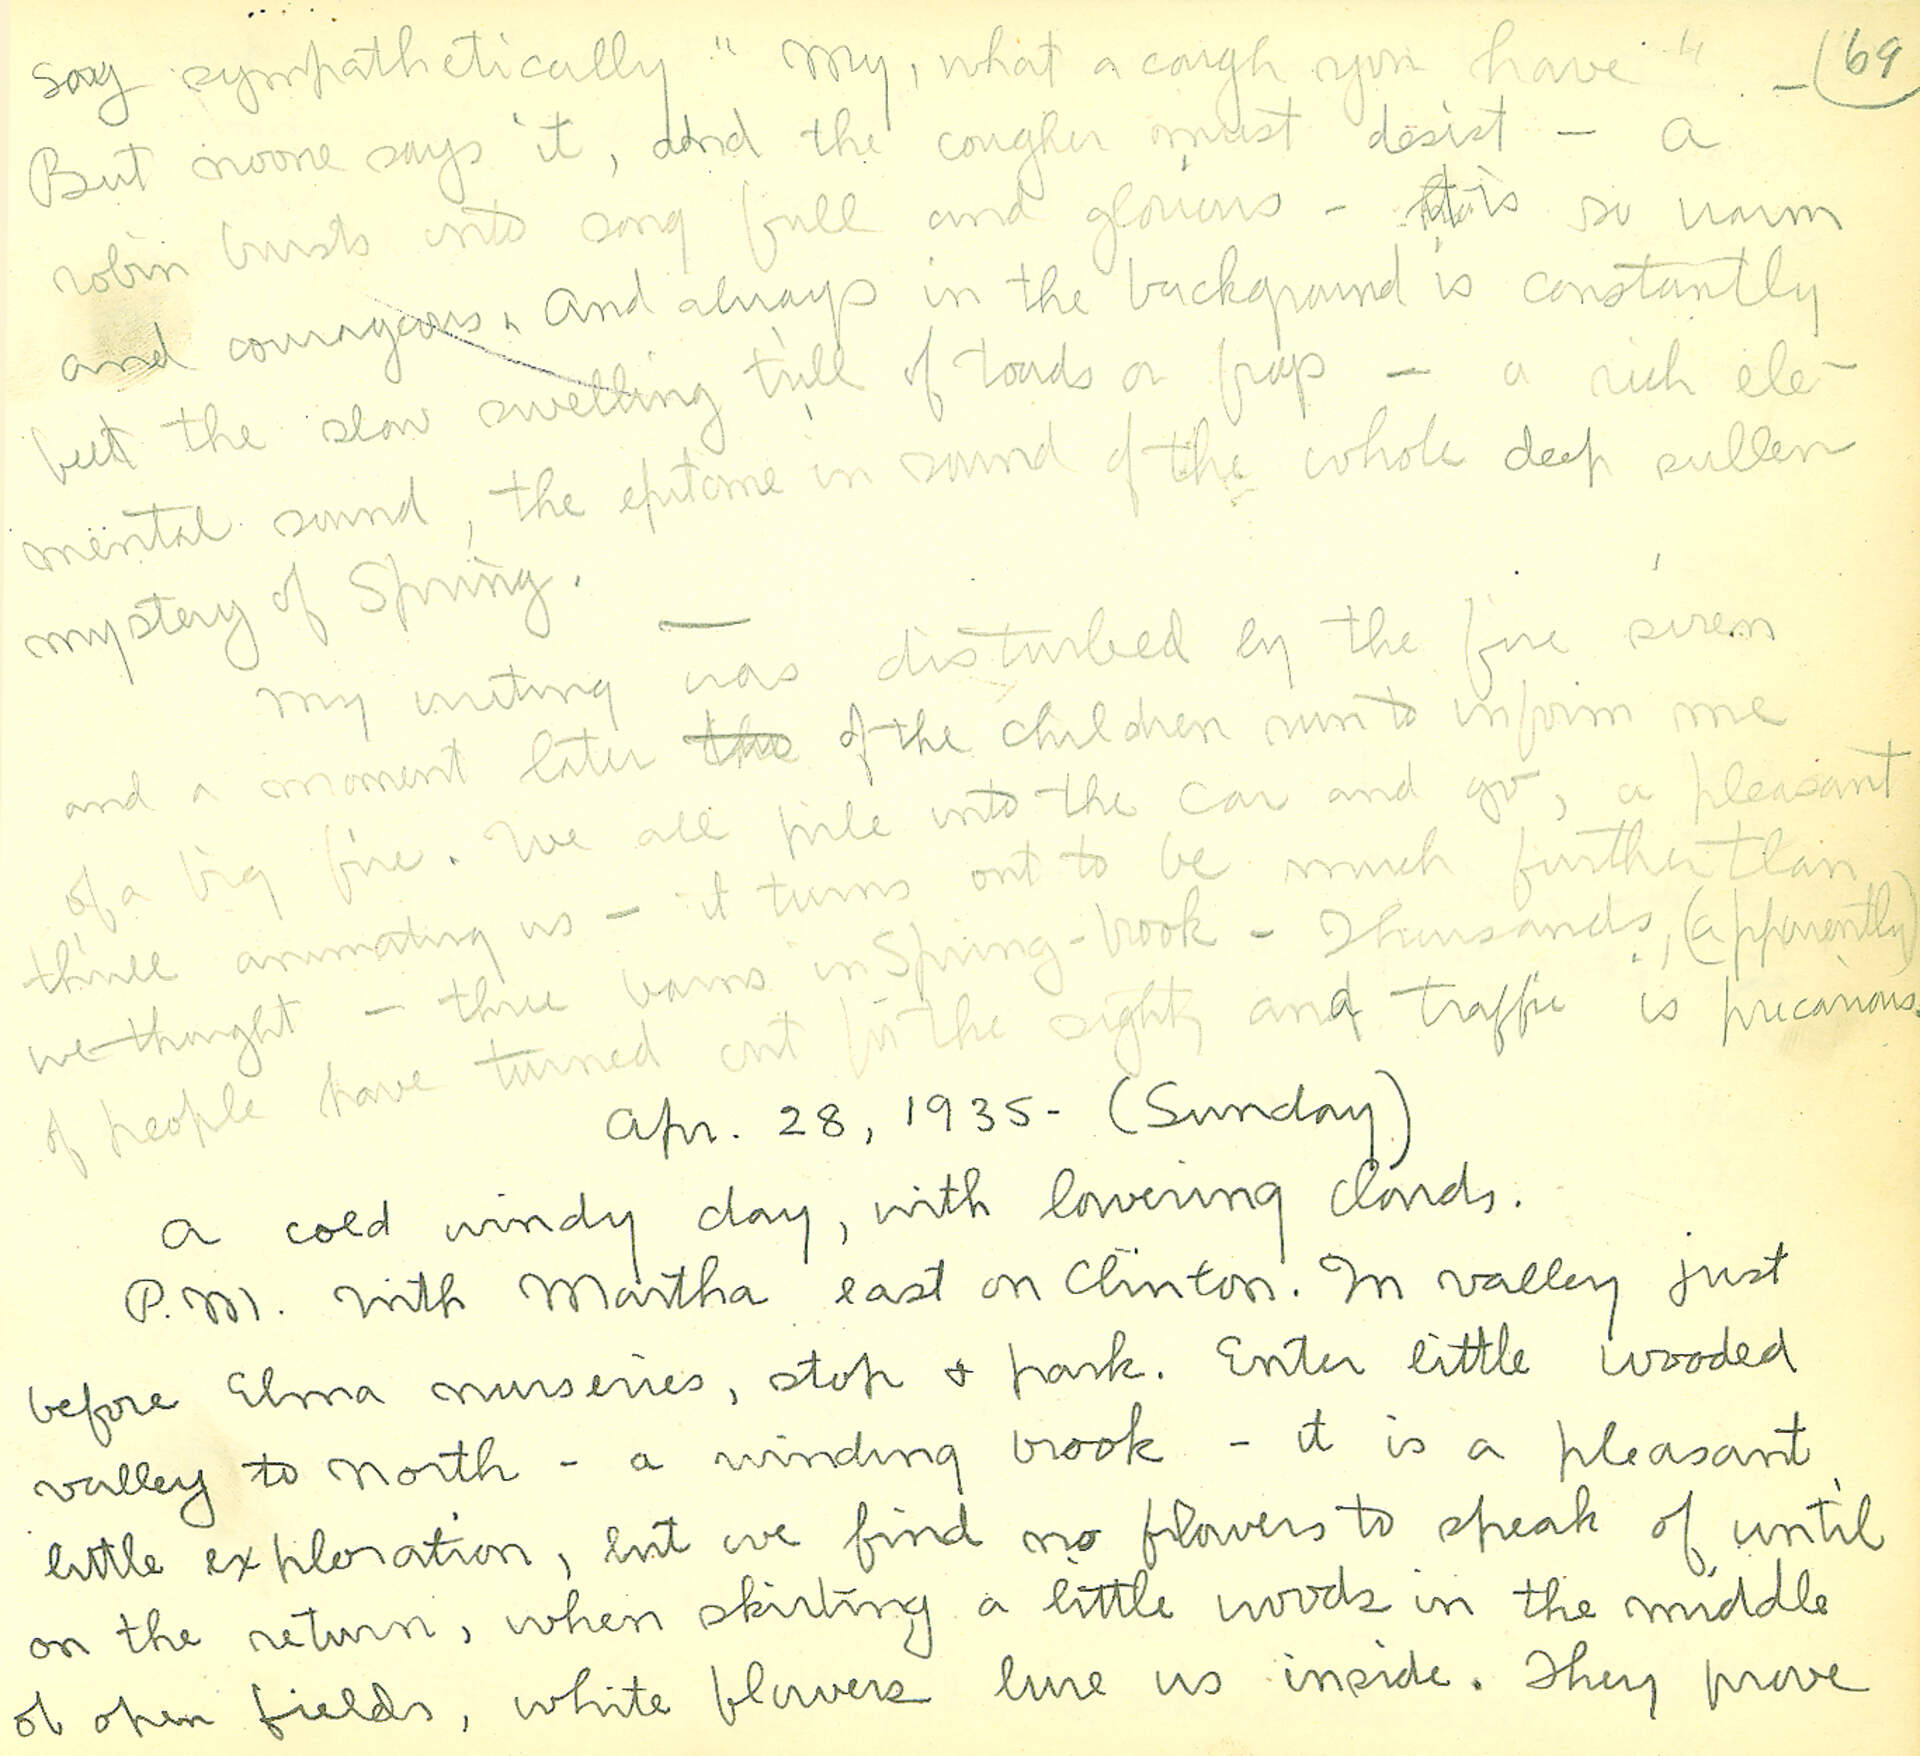 say sympathetically " My, what a cough you have " – 69
But noone says it, and the cougher must desist – A
robin bursts into song full and glorious – it is so warm
and courageous. And always in the background is constantly
but the slow swelling trill of toads or frogs – a rich ele-
mental sound, the epitome in sound of the whole deep sullen
mystery of Spring.
My writing was disturbed by the fire siren
and a moment later the of the children run to inform me
of a big fire. We all pile into the car and go, a pleasant
thrill animating us – it turns out to be much further than
we thought – three barns in Spring-brook – Thousands, (apparently)
of people have turned out for the sight, and traffic is precarious.
Apr. 28, 1935 – (Sunday)
A cold windy day, with lowering clouds.
P.M. with Martha east on Clinton. In valley just
before Elma nurseries, stop & park. Enter little wooded
valley to north – a winding brook – it is a pleasant
little exploration, but we find no flowers to speak of until
on the return, when skirting a little woods in the middle
of open fields, white flowers lure us inside. They prove